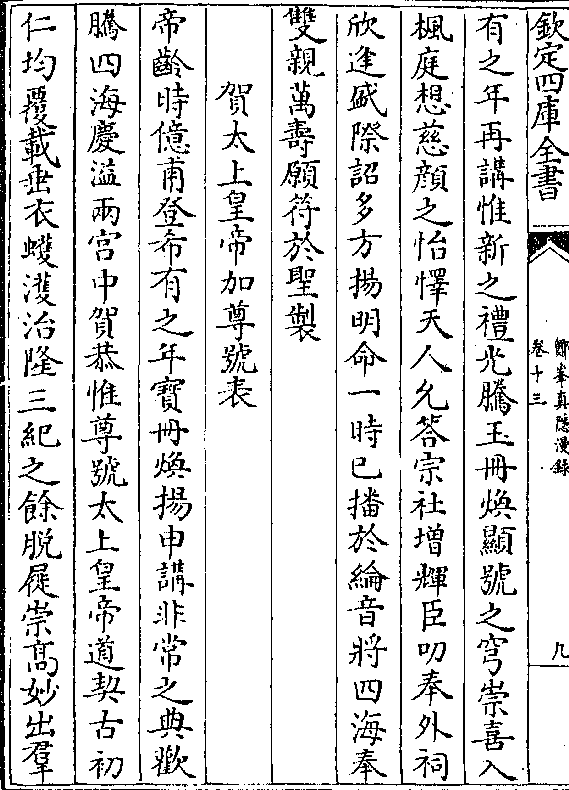 欽定四庫全書
鄮峯真隱漫録
卷十三
九
有之年再講惟新之禮光騰玉冊煥顯號之穹崇喜入
楓庭想慈顔之怡懌天人允答宗社增輝臣叨奉外祠
欣逢盛際詔多方揚明命一時已播於綸音將四海奉
雙親萬壽願符於聖製
賀太上皇帝加尊號表
帝齡時億甫登希有之年寶冊煥揚申講非常之典歡
騰四海慶溢兩宫中賀恭惟尊號太上皇帝道契古初
仁均覆載垂衣蠖濩治隆三紀之餘脱屣崇髙妙出羣